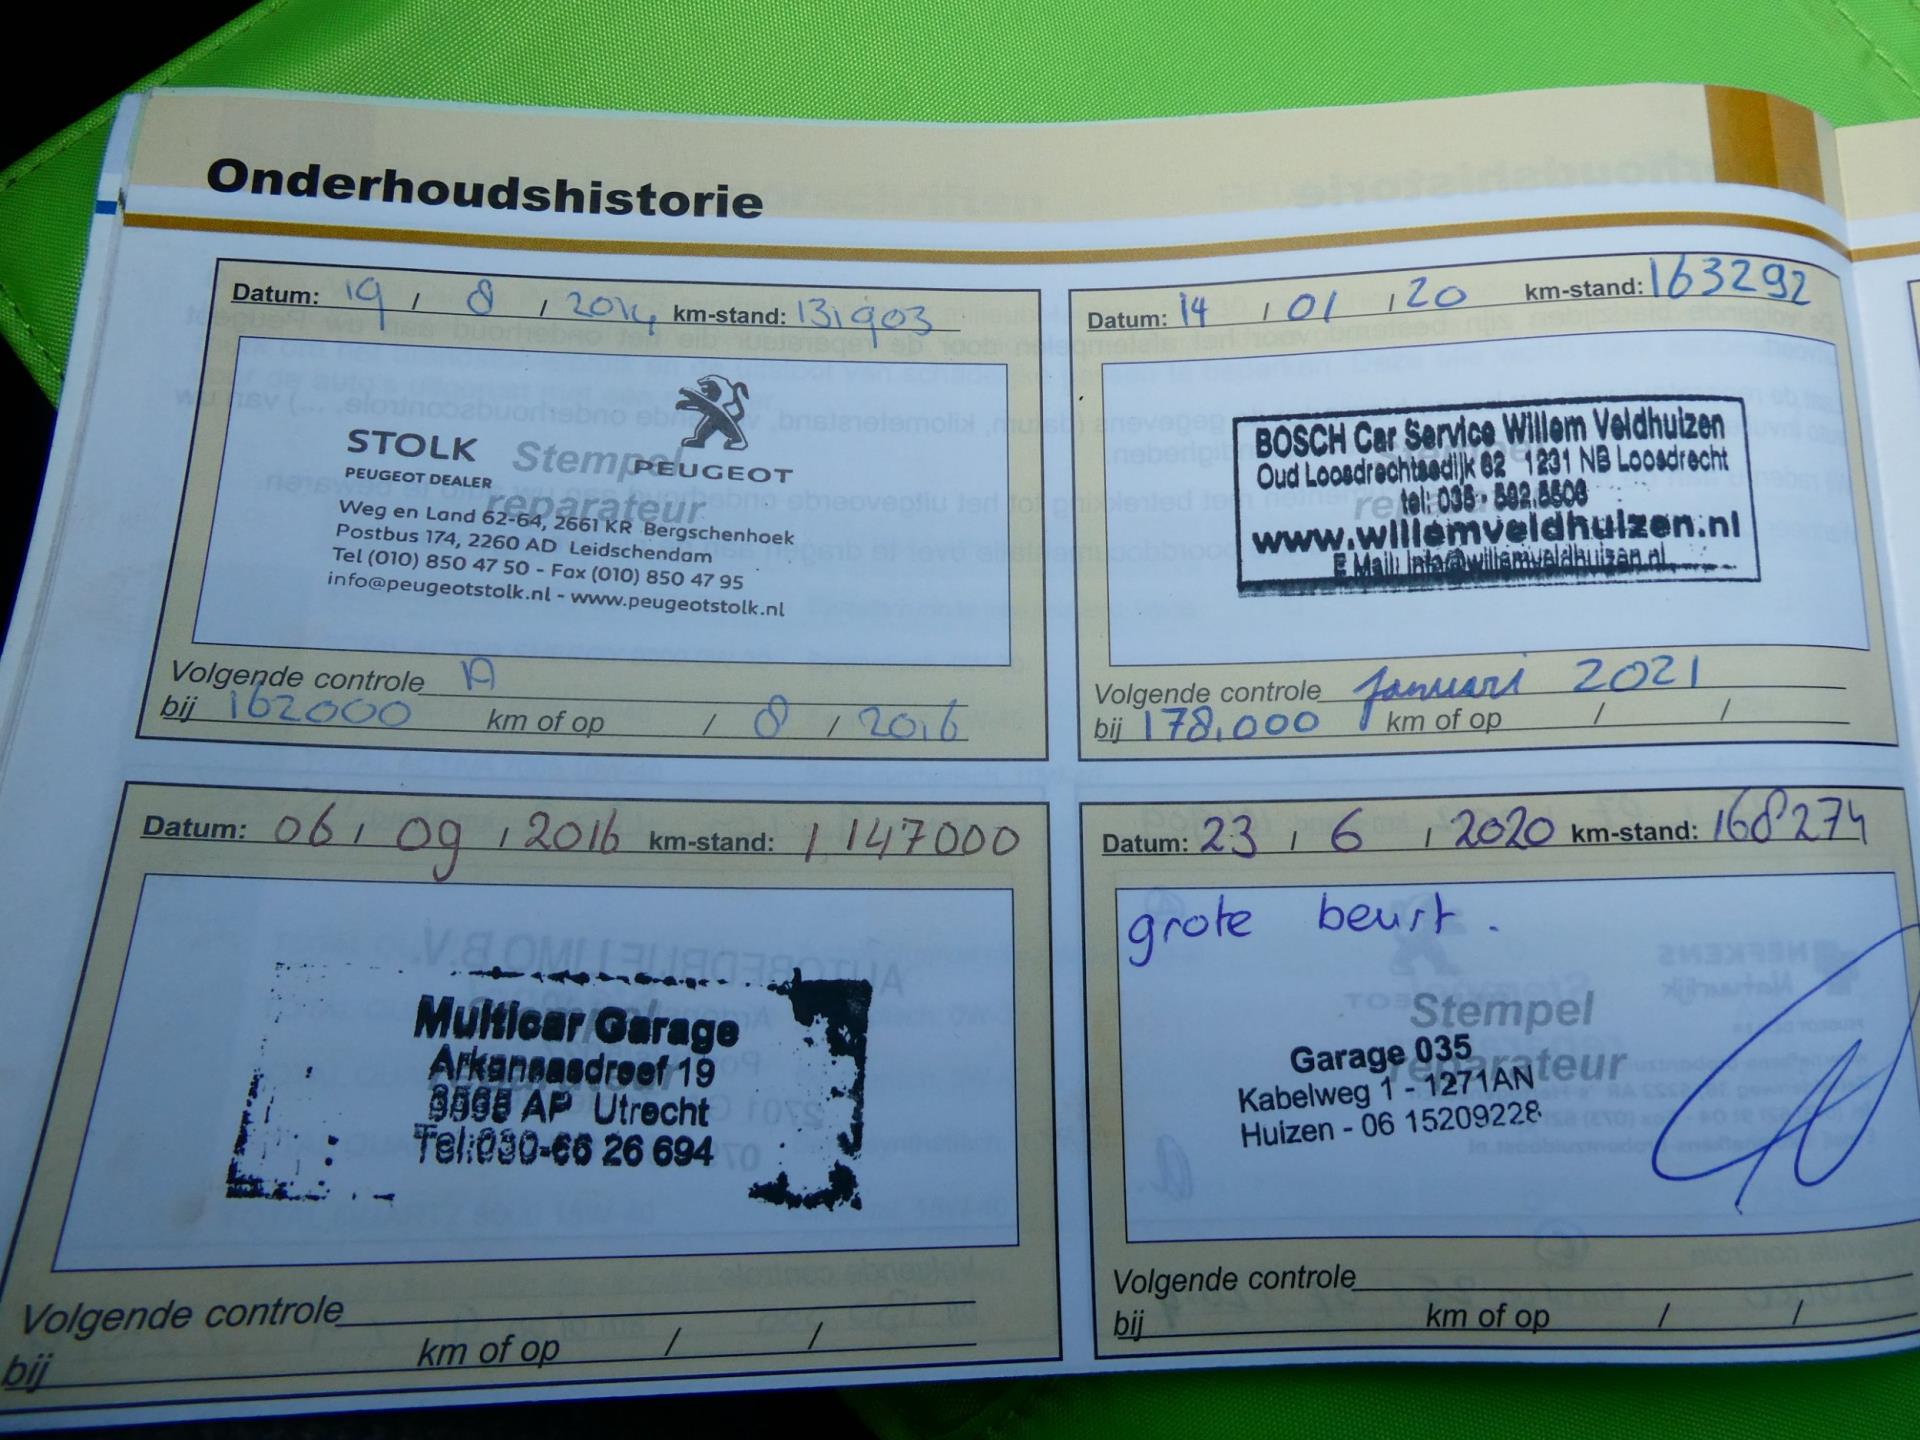 Onderhoudshistorie
Datum: 19 / 8 / 2014 km-stand: 131903
STOLK
PEUGEOT DEALER
PEUGEOT
Stempel
reparateur
Weg en Land 62-64, 2661 KR Bergschenhoek
Postbus 174, 2260 AD Leidschendam
Tel (010) 850 47 50 - Fax (010) 850 47 95
info@peugeotstolk.nl - www.peugeotstolk.nl
Volgende controle A
bij 162000 km of op / 8 / 2016
Datum: 14 / 01 / 20 km-stand: 163292
BOSCH Car Service Willem Veldhuizen
Oud Loosdrechtsedijk 62 1231 NB Loosdrecht
tel: 035-
www.willemveldhuizen.nl
E Mail: info@willemveldhuizen.nl
Volgende controle Januari 2021
bij 178.000 km of op / /
Datum: 06 / 09 / 2016 km-stand: 147000
Multicar Garage
Arkansasdreef 19
AP Utrecht
Tel:030-66 26 694
Volgende controle
bij km of op / /
Datum: 23 / 6 / 2020 km-stand: 168274
grote beurt.
Stempel
reparateur
Garage 035
Kabelweg 1 - 1271AN
Huizen - 06 15209228
Volgende controle
bij km of op / /